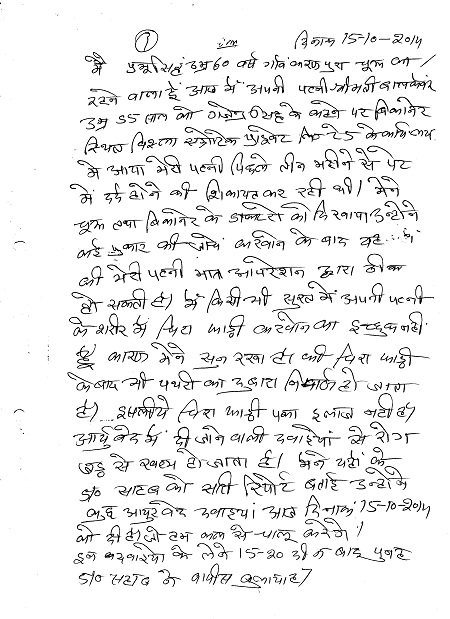 ① ॐ दिनांक 15-10-2014
मैं प्रभुसिंह उम्र 60 वर्ष गांव करणपुरा चूरू का
रहने वाला हूं आज मैं अपनी पत्नी श्रीमती
उम्र 55 साल को सिंह के कहने पर बिकानेर
स्थित 25 के कार्यालय
में आया मेरी पत्नी पिछले तीन महीने से पेट
में दर्द होने की शिकायत कर रही थी। मैने
चूरू तथा बिकानेर के डाक्टरो को दिखाया उन्होने
कई प्रकार की जांचे करवाने के बाद कहा
की मेरी पत्नी मात्र आपरेशन द्वारा ठीक
हो सकती है। मैं किसी भी सुरत में अपनी पत्नी
के शरीर में चिरा फाड़ी करवाने का इच्छुक नही
हूँ कारण मैने सुन रखा है। की चिरा फाड़ी
के बाद भी पथरी का दुबारा हो जाता
है। इसलीये चिरा फाड़ी पका इलाज नही है।
आर्युवेद में दी जाने वाली दवाईयां से रोग
जड़ से खत्म हो जाता है। मैने यहां के
डा० साहब को सभी रिपोर्ट बताई उन्होने
कुछ आयुरवेद दवाइयां आज दिनांक 15-10-2014
को दी है। जो हम कल से चालु करेगे।
इन दवाईयो के लेने 15-20 दीन बाद पुनः
डा० साहब ने वापीस बुलाया है।